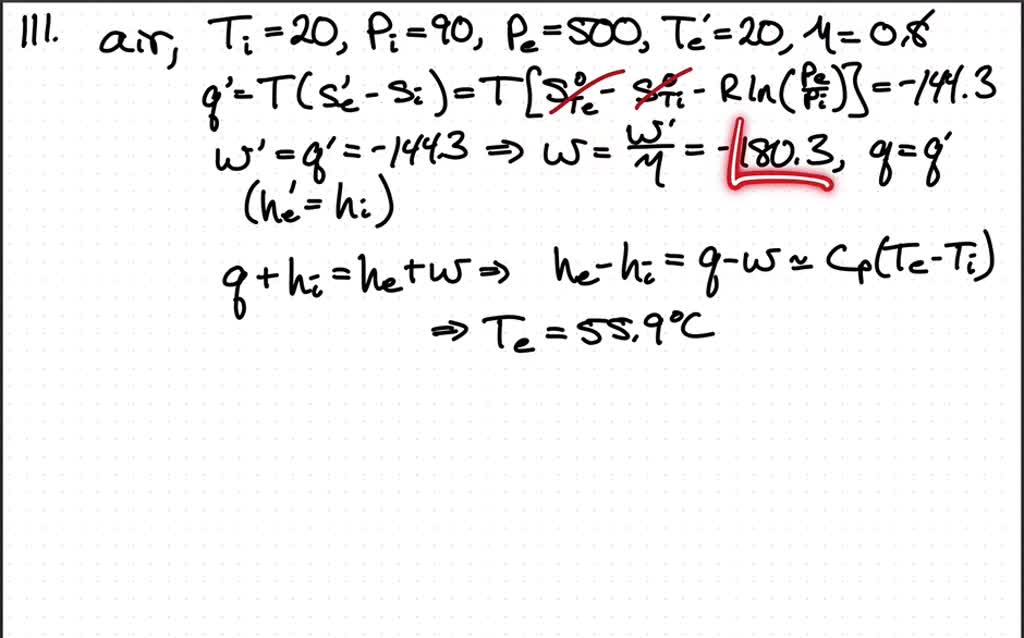 111. air, Ti = 20, Pi = 90, Pe = 500, Te' = 20, η = 0.8
q' = T(se' - si) = T[s°Te - s°Ti - R ln(Pe/Pi)] = -144.3
w' = q' = -144.3 ⇒ w = w'/η = -180.3, q = q'
(he' = hi)
q + hi = he + w ⇒ he - hi = q - w ≃ Cp(Te - Ti)
⇒ Te = 55.9°C